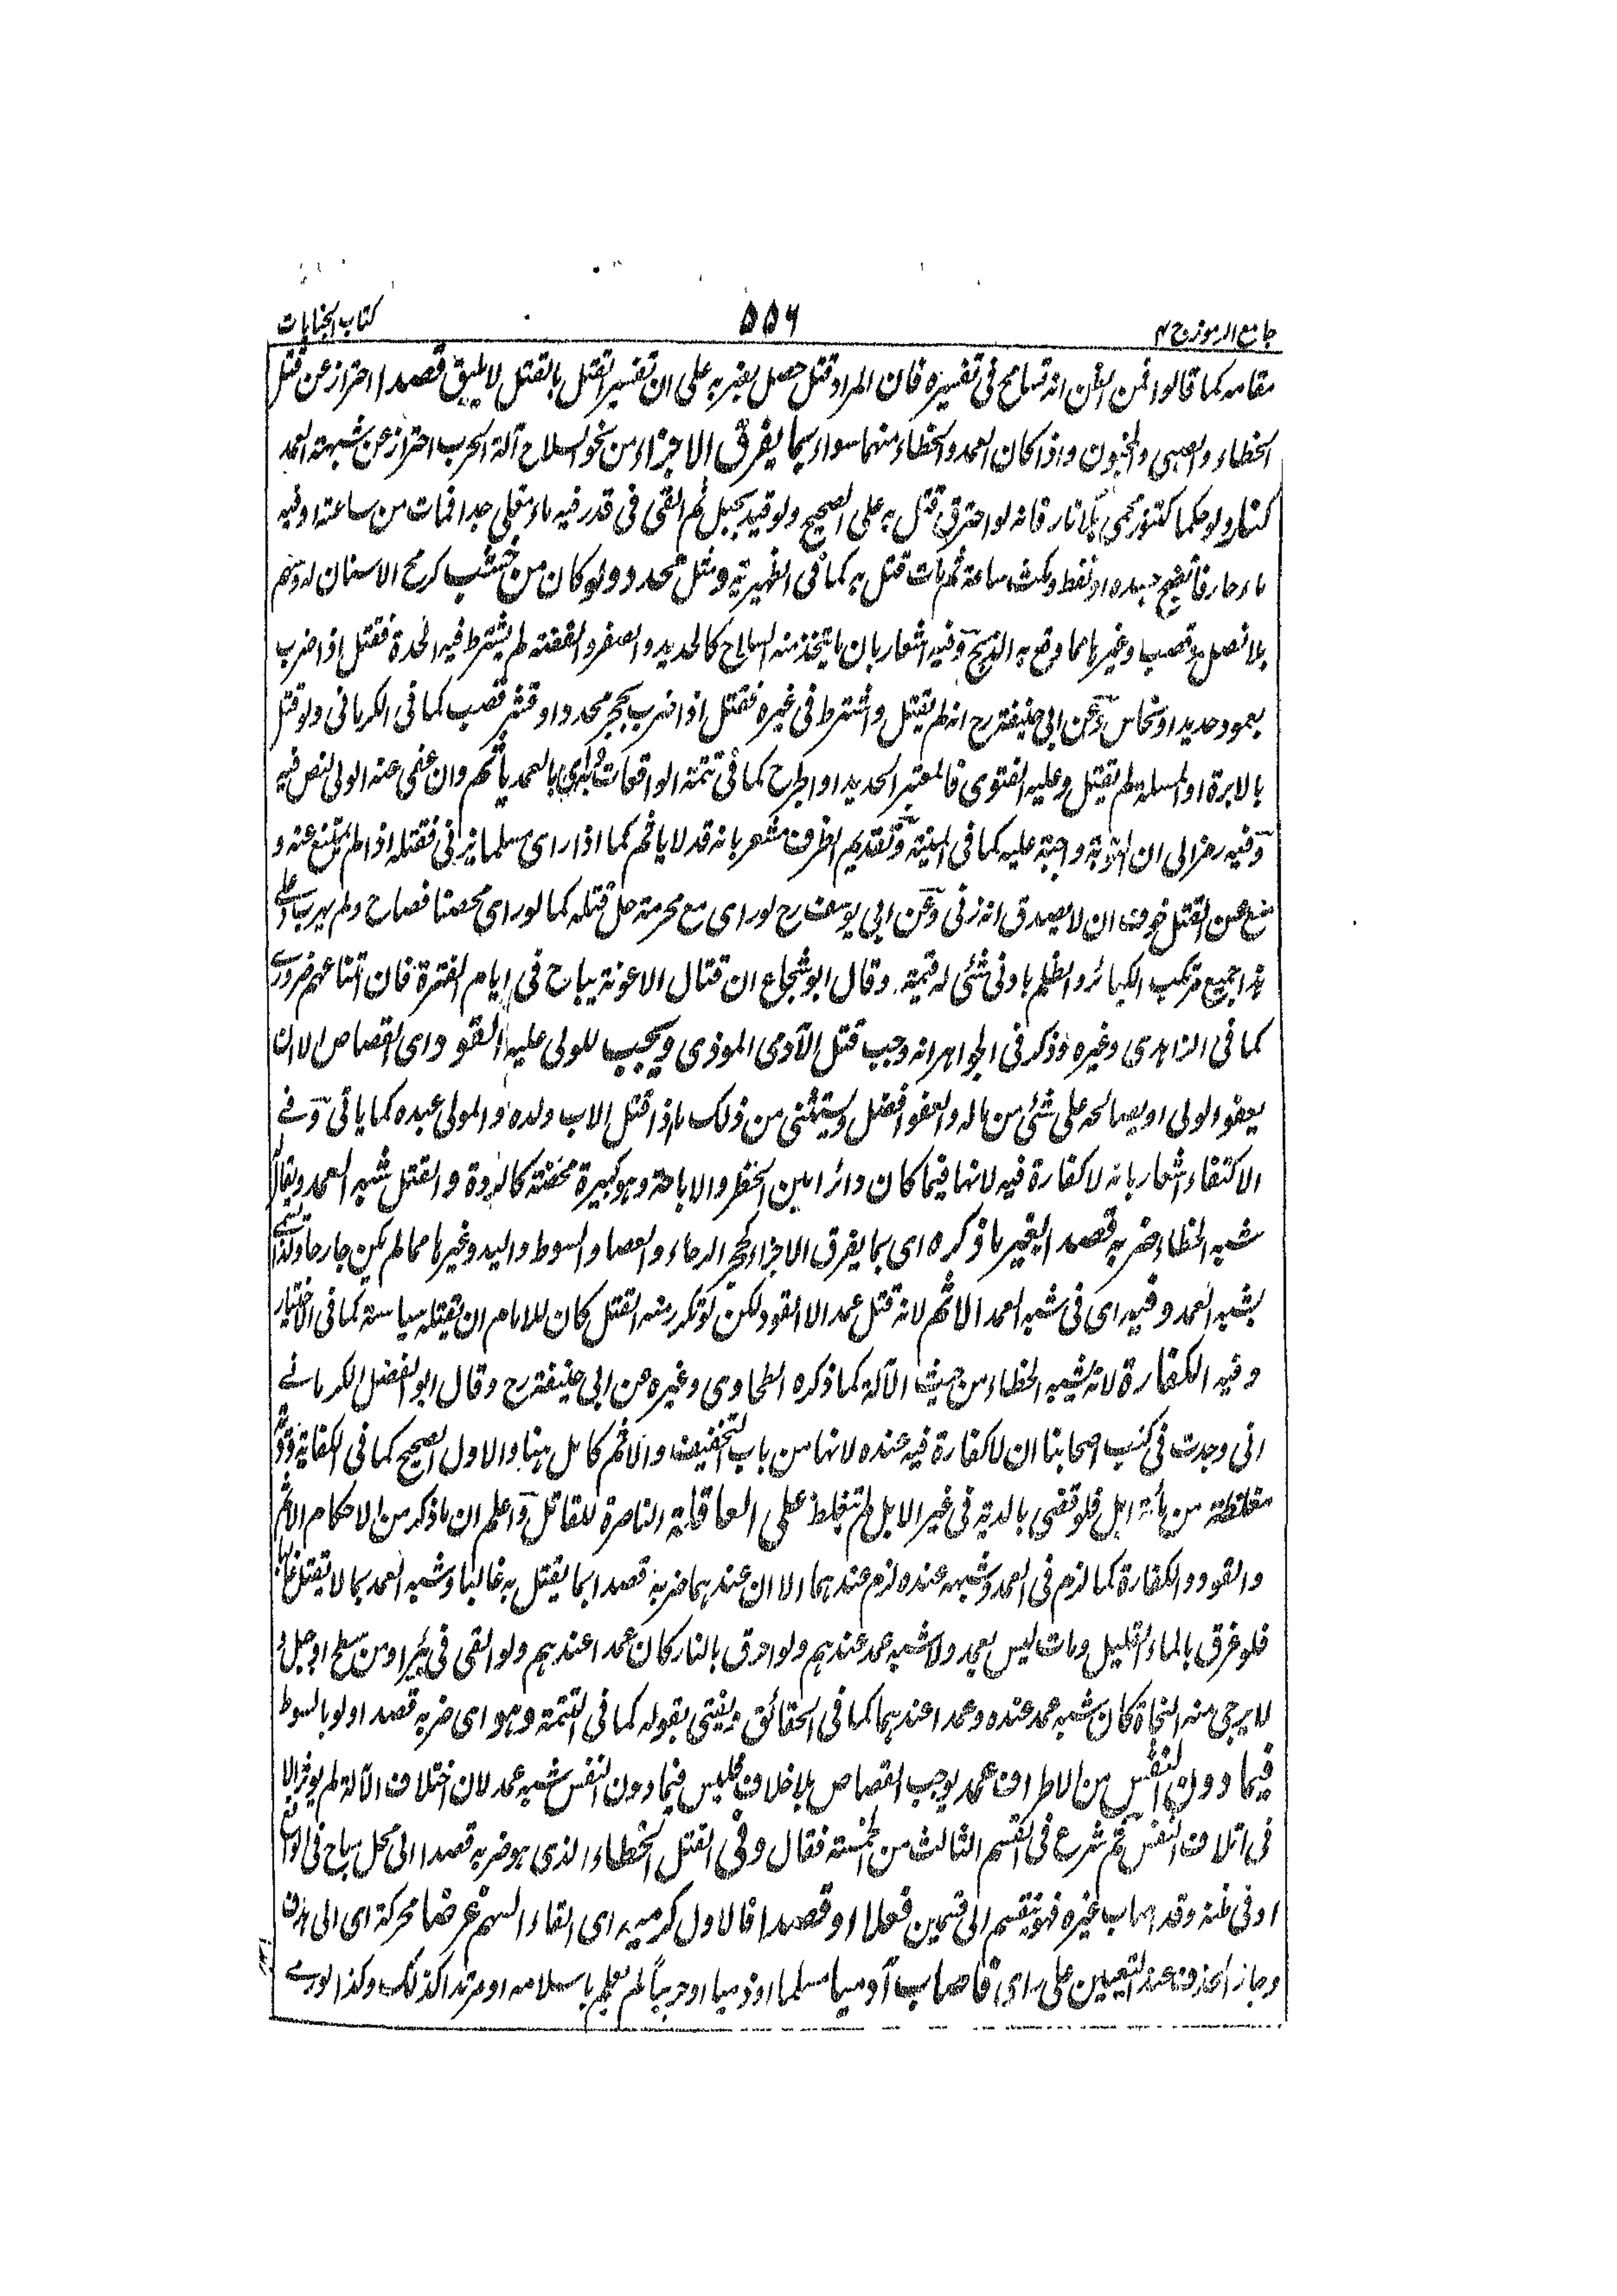 جامع الرموز ج ۴
۵۵۶
کتاب الجنایات
مقامه کما قالوا فمن الظن انه تسامح فی تفسیره فان المراد قتل حصل بضربه علی ان تفسیر القتل بالقتل لا یلیق قصدا احتراز عن قتل
الخطاء والصبی والمجنون واذا کان العمد والخطاء منهما سواء بما یفرق الاجزاء من نحو السلاح آلة الحرب احتراز عن شبهة العمد
کنار ولو حکما کتنور محمی بلا نار فانه لو احترق قتل به علی الصحیح ولو قید بحبل ثم القی فی قدر فیه ماء مغلی جدا فمات من ساعته او فیه
ماء حار فانضج جسده او نفط ومکث ساعة ثم مات قتل به کما فی الظهیریة ومثل محدد ولو کان من خشب کرمح لا سنان له وسهم
بلا نصل وقصب وغیرها مما وقع به الذبح وفیه اشعار بان ما یتخذ منه السلاح کالحدید والصفر والفضة لم یشترط فیه الحدة فقتل اذا ضرب
بعمود حدید او نحاس وعن ابی حنیفة رح انه لم یقتل واشترط فی غیره فقتل اذا ضرب بحجر محدد او قشر قصب کما فی الکرمانی ولو قتل
بالابرة او المسلة لم یقتل وعلیه الفتوی فالمعتبر الحدید او الجرح کما فی تتمة الواقعات بالعمد یأثم وان عفی عنه الولی لنص فیه
وفیه رمز الی ان التوبة واجبة علیه کما فی المنیة وتقدیم الظرف مشعر بانه قد لا یاثم کما اذا رای مسلما یزنی فقتله اذا لم یمتنع عنه و
منع عن القتل خوف ان لا یصدق انه زنی وعن ابی یوسف رح لو رای مع محرمة حل قتله کما لو رای محصنا فصاح ولم یهرب وعلی
هذا جمیع مرتکب الکبائر والظلم بادنی شئی له قیمة وقال ابو شجاع ان قتال الاعونة یباح فی ایام الفترة فان امتناعهم ضروری
کما فی الزاهدی وغیره وذکر فی الجواهر انه وجب قتل الآدمی الموذی ویجب للولی علیه القود ای القصاص الا ان
یعفو الولی او یصالحه علی شئی من ماله والعفو افضل ویستثنی من ذلک ما اذا قتل الاب ولده والمولی عبده کما یاتی وفی
الاکتفاء اشعار بانه لا کفارة فیه لانها فیما کان دائرا بین الحظر والاباحة وهو کبیرة محضة کالردة والقتل شبه العمد ویقال
شبه الخطاء ضربه قصدا بغیر ما ذکره ای بما یفرق الاجزاء کحجر الرحاء والعصا والسوط والید وغیرها مما لم یکن جارحا ولذا یسمی
بشبه العمد وفیه ای فی شبه العمد الاثم لانه قتل عمدا لا القود ولکن لو تکرر منه القتل کان للامام ان یقتله سیاسة کما فی الاختیار
وفیه الکفارة لانه یشبه الخطاء من حیث الآلة کما ذکره الطحاوی وغیره عن ابی حنیفة رح وقال ابو الفضل الکرمانی
انی وجدت فی کتب اصحابنا ان لا کفارة فیه عنده لانها من باب التخفیف والاثم کامل هنا والاول الصحیح کما فی الکفایة ودیة
مغلظة من مأة ابل فلو قضی بالدیة فی غیر الابل لم تغلظ علی العاقلة الناصرة للقاتل واعلم ان ما ذکر من الاحکام الاثم
والقود والکفارة کما لزم فی العمد وشبهه عنده لزم عندهما الا ان عندهما ضربه قصدا بما یقتل به غالبا وشبه العمد بما لا یقتل غالبا
فلو غرق بالماء القلیل ومات لیس بعمد ولا شبه عمد عندهم ولو احرق بالنار کان عمدا عندهم ولو القی فی بئر او من سطح او جبل و
لا یرجی منه النجاة کان شبه عمد عنده وعمدا عندهما کما فی الحقائق ویفتی بقوله کما فی التتمة وهو ای ضربه قصدا ولو بالسوط
فیما دون النفس من الاطراف عمد یوجب القصاص بلا خلاف فلیس فیما دون النفس شبه عمد لان اختلاف الآلة لم یوثر الا
فی اتلاف النفس ثم شرع فی القسم الثالث من الخمسة فقال وفی القتل الخطاء الذی هو ضربه قصدا الی محل مباح فی الواقع
او فی ظنه وقد اصاب غیره فهو ینقسم الی قسمین فعلا او قصدا فالاول کرمیه ای القاء السهم غرضا محرکة ای الی هدف
وجاز الحذف عند التعیین علی رای فاصاب آدمیا مسلما او ذمیا او حربیا لم یعلم باسلامه او مرتدا کذلک وکذا لو رمی